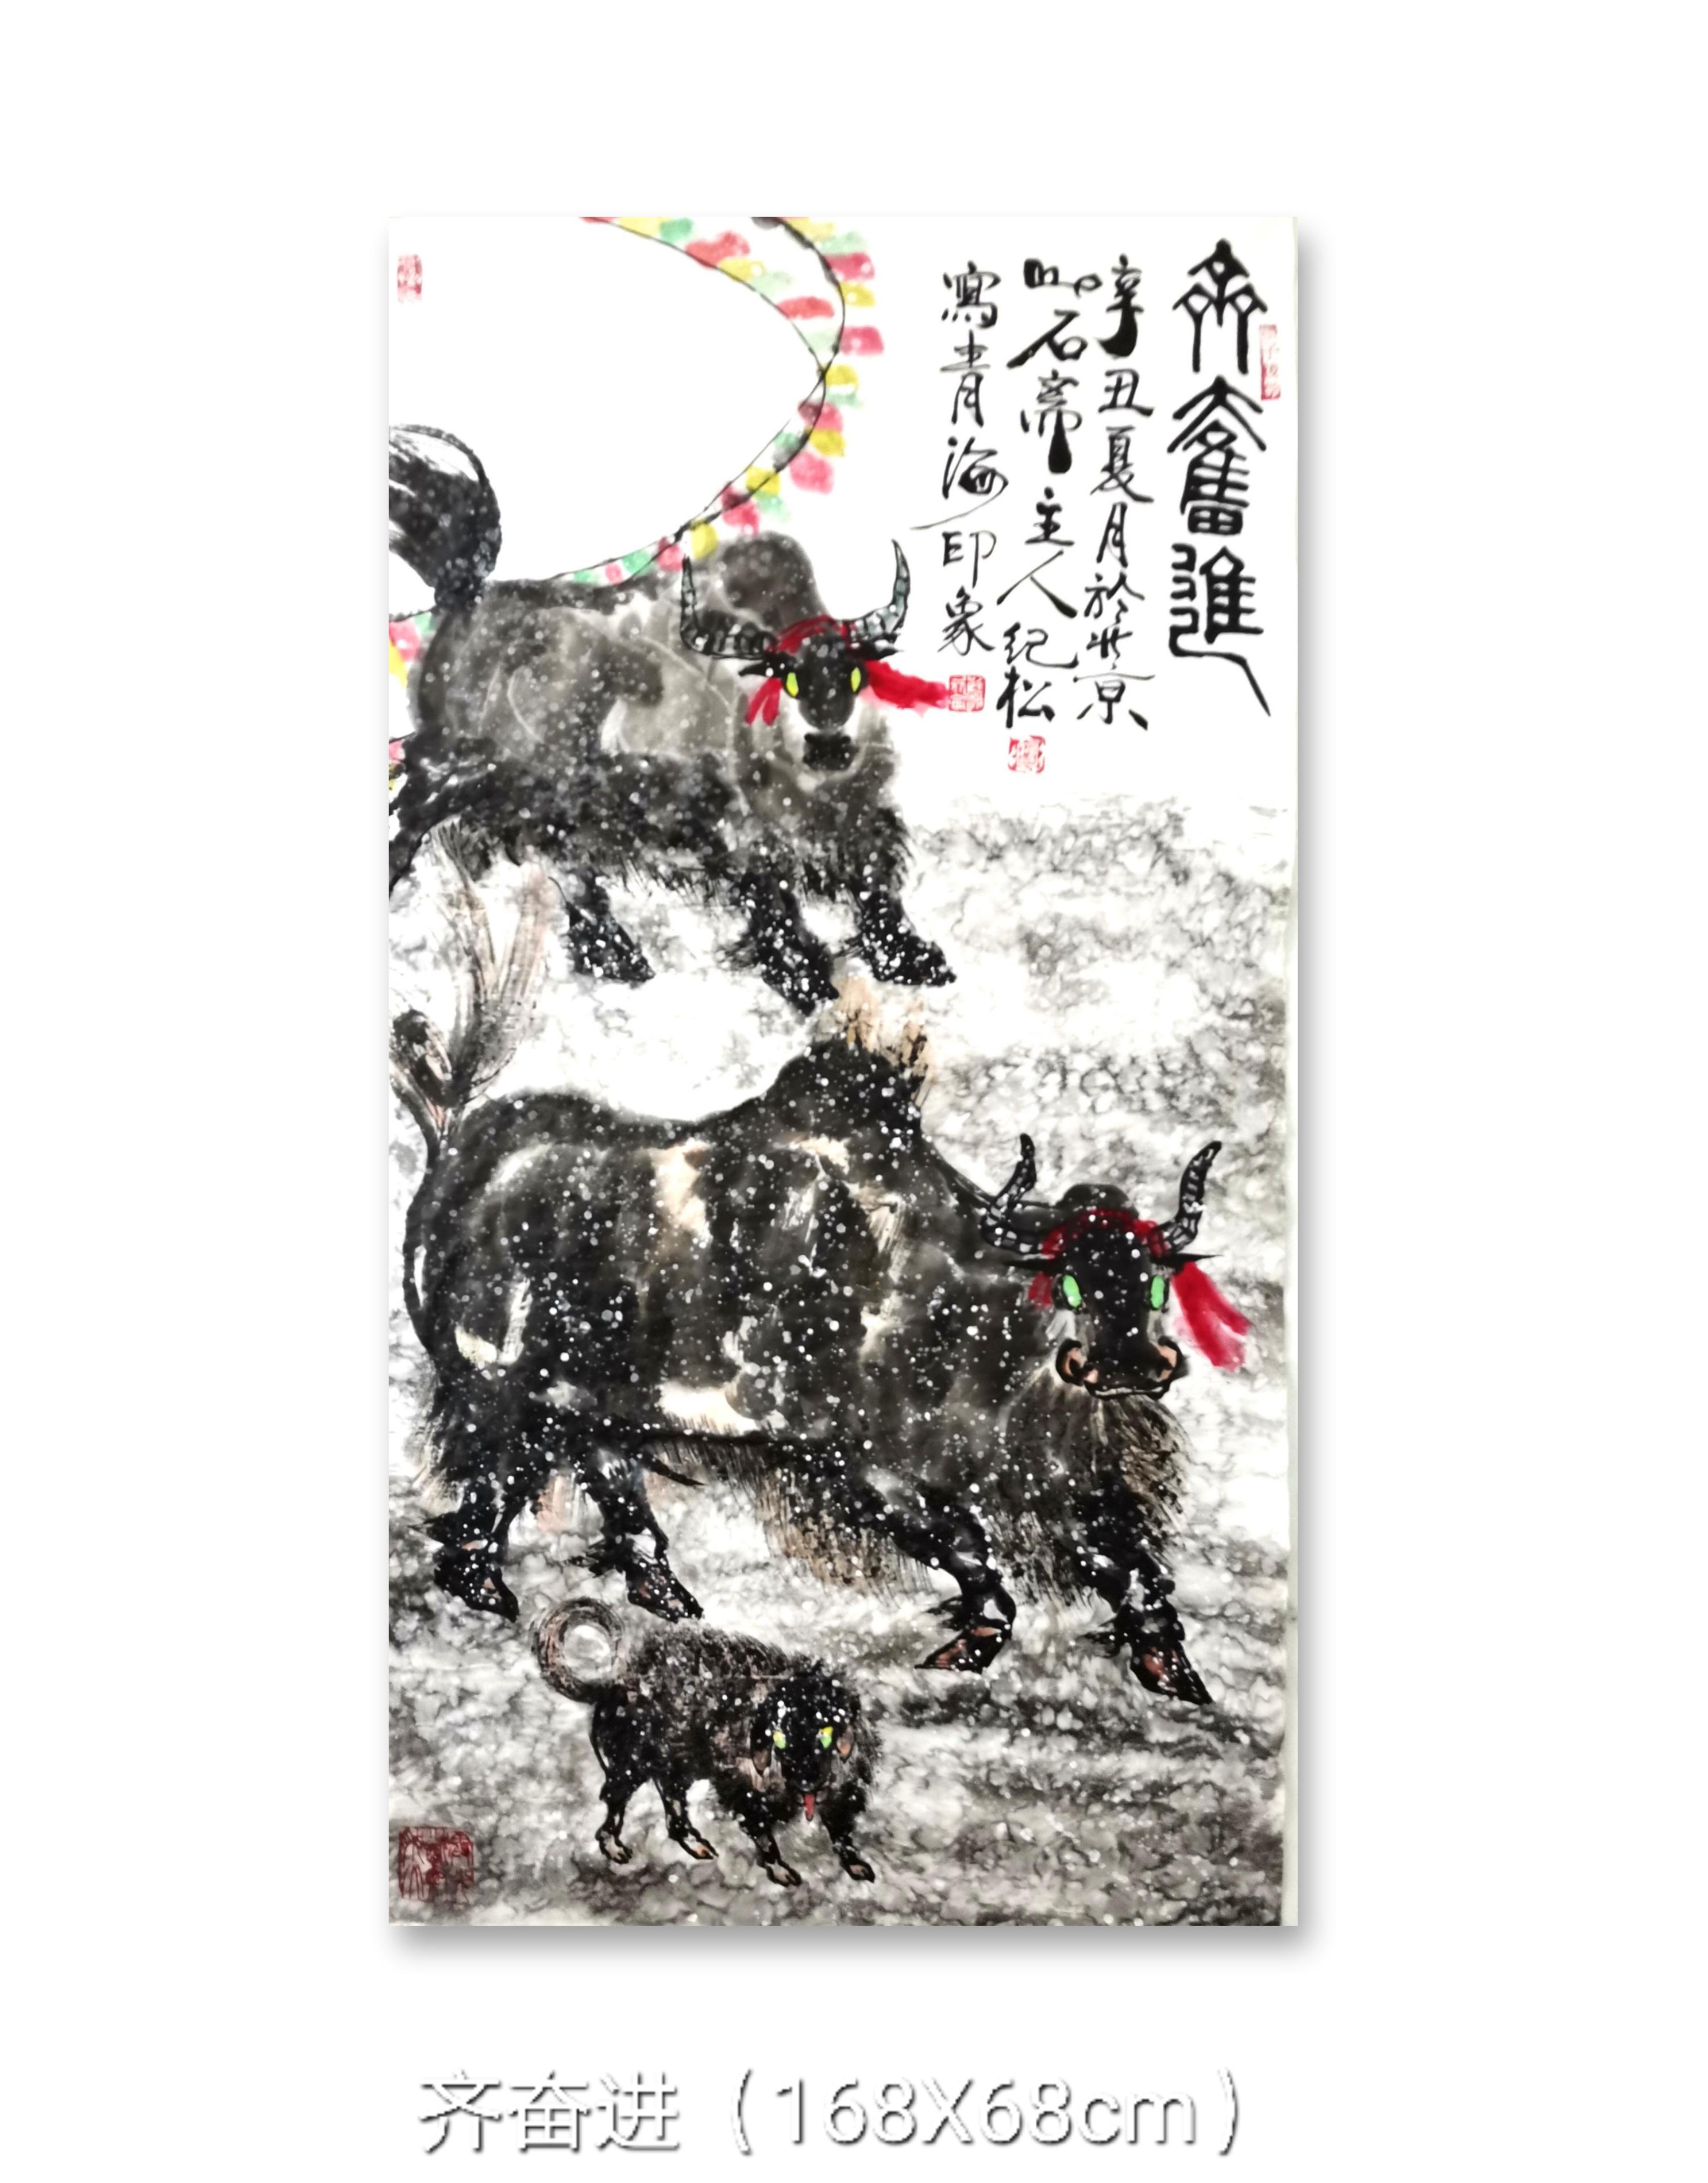 齐奋進
辛丑夏月於北京
石斋主人纪松
寫青海印象
齐奋进（168X68cm）